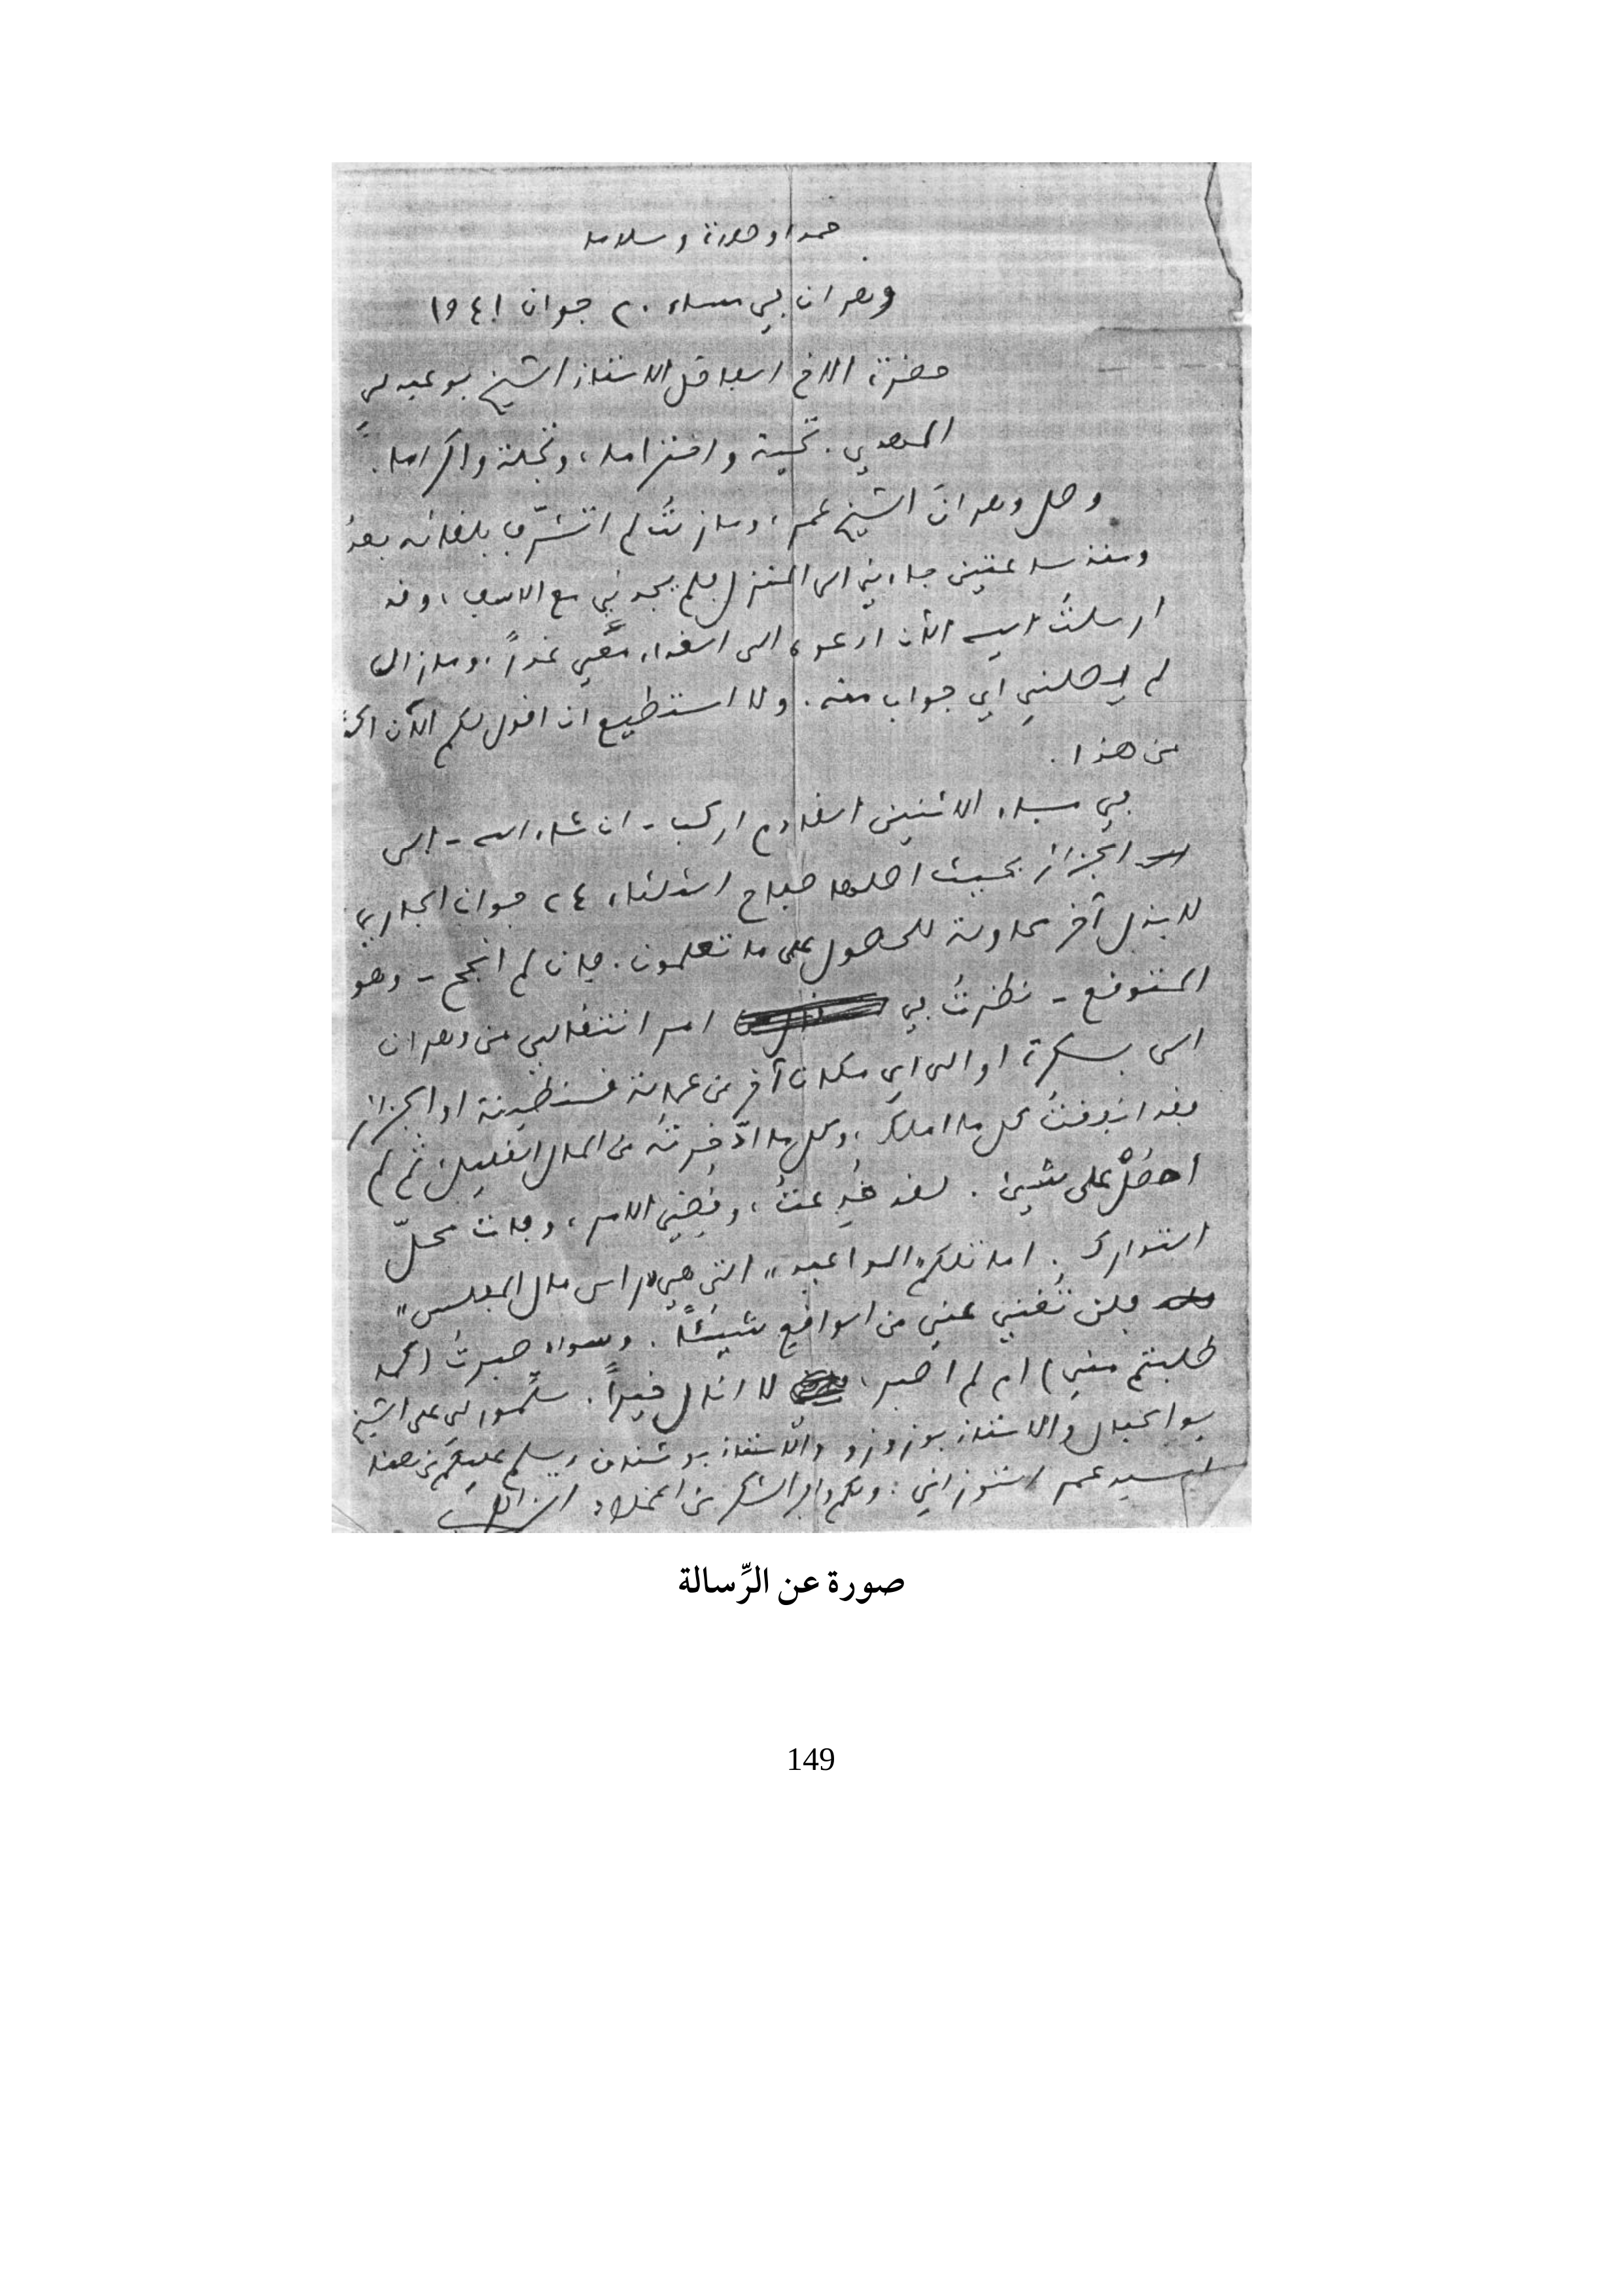 حمدا وصلاة وسلاما
وهران في مساء ٢٠ جوان ١٩٤١
حضرة الاخ الفاضل الاستاذ الشيخ بوعبدلي
المهدي. تحية واحتراما، وتجلة واكراما.
وصل وهرانَ الشيخ عمر، ومازلتُ لم اتشرّف بلقائه بعدُ
ومنذ ساعتين جاءني الى المنزل فلم يجدني مع الاسف، وقد
ارسلتُ اليه الآن ادعوه الى الغداء معي غداً، ومازال
لم يصلني اي جواب منه. ولا استطيع ان اقول لكم الآن اكثر
من هذا.
في مساء الاثنين القادم اركب - ان شاء الله - الى
الجزائر بحيث اصلها صباح الثلاثاء ٢٤ جوان الجاري
لابذل آخر محاولة للحصول على ما تعلمون. فان لم انجح - وهو
المتوقع - نظرتُ في امر انتقالي من وهران
الى بسكرة او الى اي مكان آخر من عمالة قسنطينة او الجزائر
فقد انفقتُ كل ما املك، وكل ما ادّخرته من المال القليل، ثم لم
احصُلْ على شيئ. لقد خُدعتُ، وقُضِيَ الامر، وفات محلّ
التدارك. اما تلكم "المواعيد" التي هي "راس مال المفلس"
فلن تُغنيَ عني من الواقع شيئاً. وسواء صبرتُ (كما
طلبتم مني) ام لم اصبر، لا انال خيراً. سلّموا لي على الشيخ
بوالحبال والاستاذ بوزوزو والاستاذ بوشناف ويسلم عليكم من هنا
السيد عمر التوزاني: ولكم وافر الشكر من اخلاد